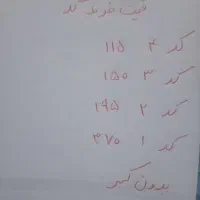 قیمت خرید کد
کد ۴ ۱۱۵
کد ۳ ۱۵۰
کد ۲ ۱۹۵
کد ۱ ۳۷۰
بدون گیر